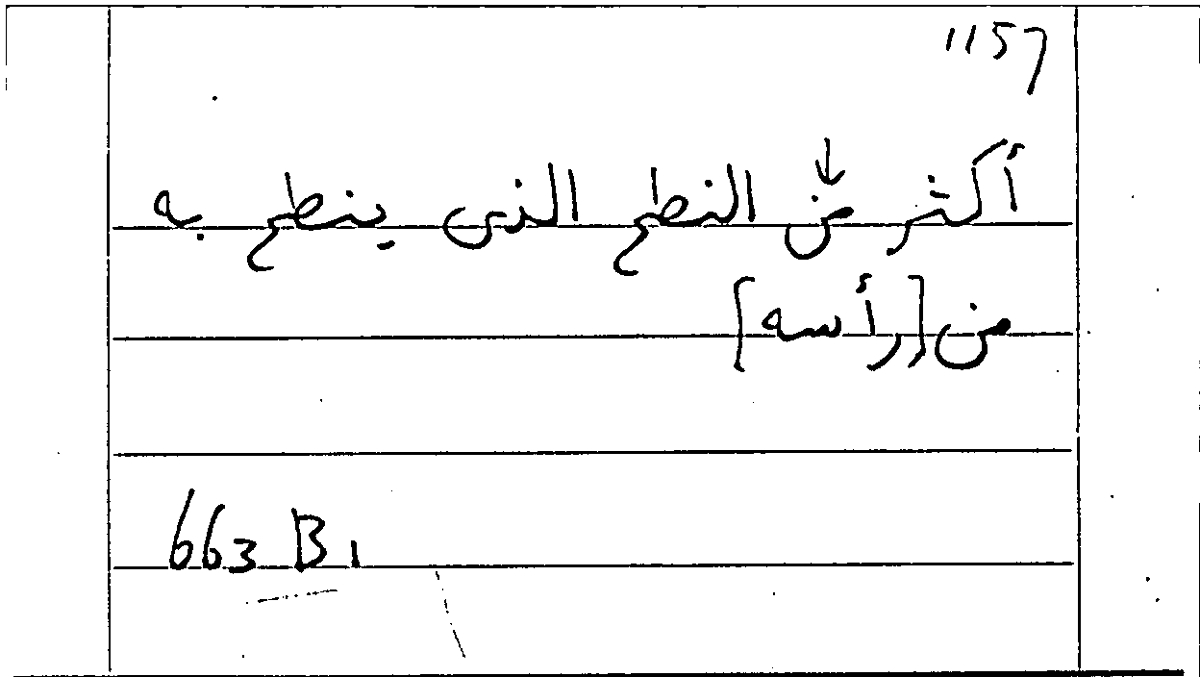 1157
أكثر من النطح الذى ينطح به
من [رأسه]
663 B1